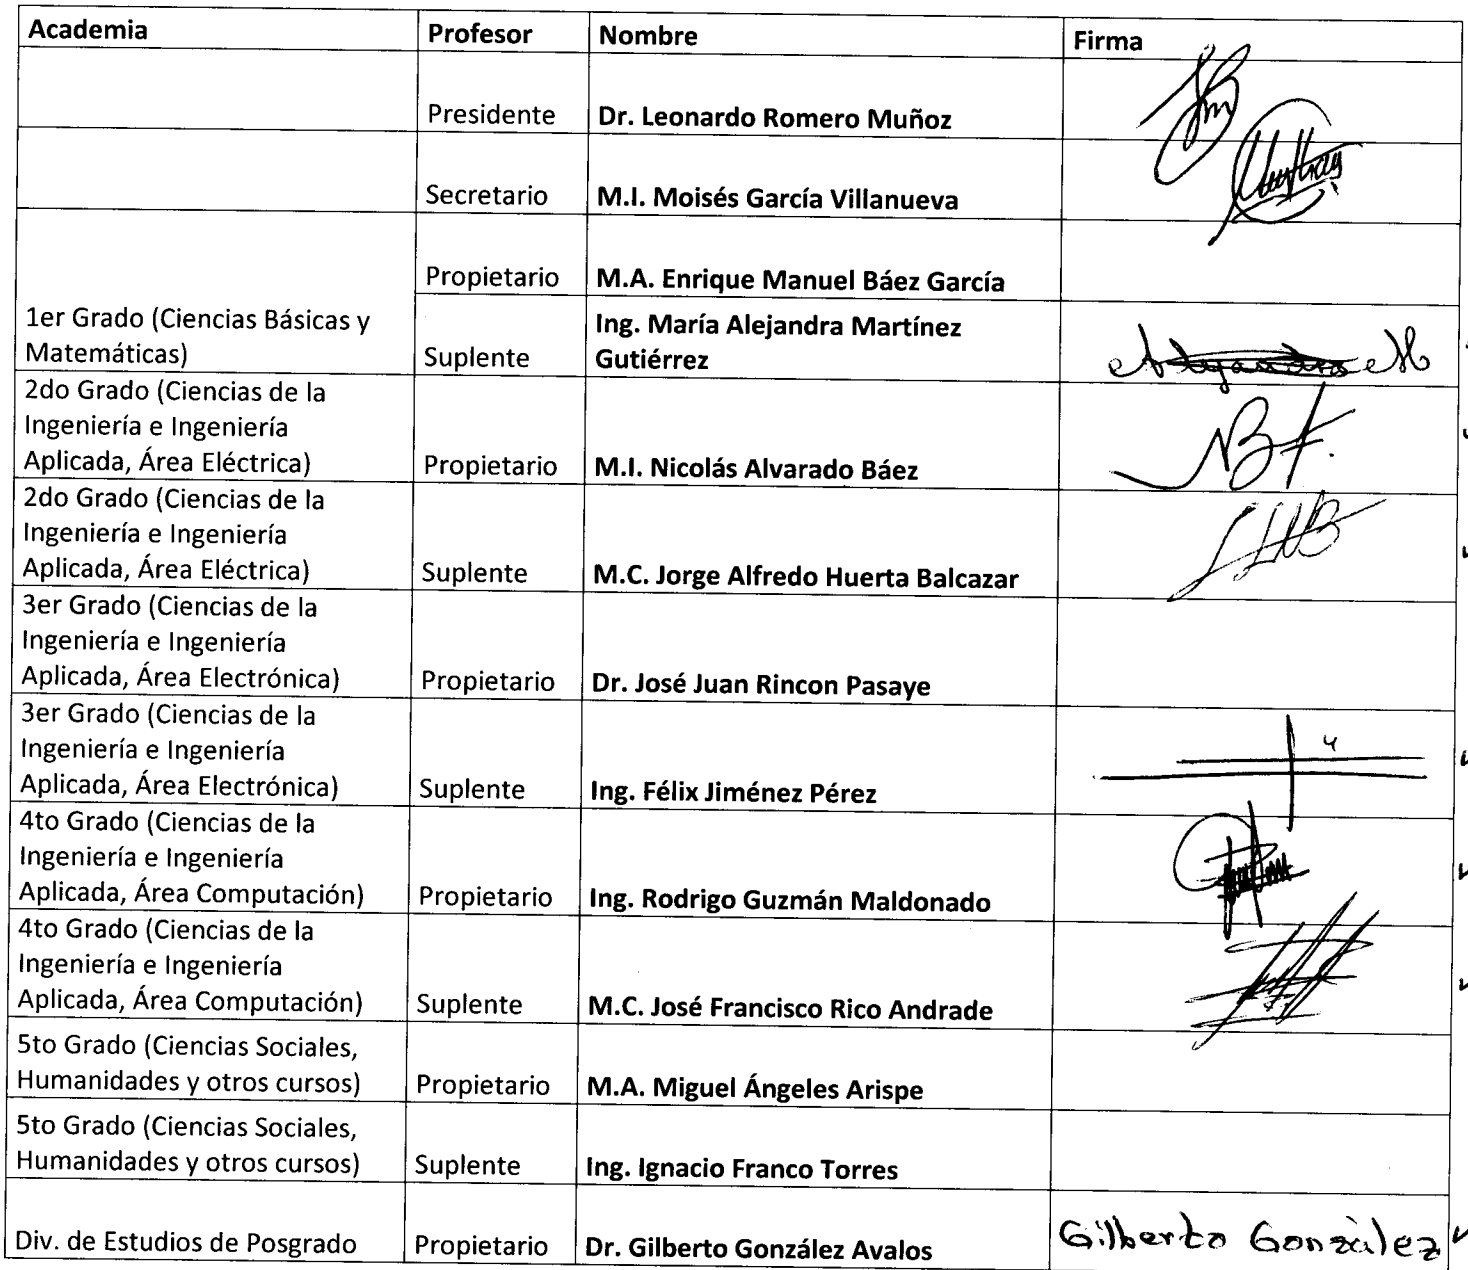 Academia Profesor Nombre Firma
Presidente Dr. Leonardo Romero Muñoz
Secretario M.I. Moisés García Villanueva
Propietario M.A. Enrique Manuel Báez García
1er Grado (Ciencias Básicas y
Matemáticas) Suplente Ing. María Alejandra Martínez
Gutiérrez Alejandra M
2do Grado (Ciencias de la
Ingeniería e Ingeniería
Aplicada, Área Eléctrica) Propietario M.I. Nicolás Alvarado Báez
2do Grado (Ciencias de la
Ingeniería e Ingeniería
Aplicada, Área Eléctrica) Suplente M.C. Jorge Alfredo Huerta Balcazar
3er Grado (Ciencias de la
Ingeniería e Ingeniería
Aplicada, Área Electrónica) Propietario Dr. José Juan Rincon Pasaye
3er Grado (Ciencias de la
Ingeniería e Ingeniería
Aplicada, Área Electrónica) Suplente Ing. Félix Jiménez Pérez
4to Grado (Ciencias de la
Ingeniería e Ingeniería
Aplicada, Área Computación) Propietario Ing. Rodrigo Guzmán Maldonado
4to Grado (Ciencias de la
Ingeniería e Ingeniería
Aplicada, Área Computación) Suplente M.C. José Francisco Rico Andrade
5to Grado (Ciencias Sociales,
Humanidades y otros cursos) Propietario M.A. Miguel Ángeles Arispe
5to Grado (Ciencias Sociales,
Humanidades y otros cursos) Suplente Ing. Ignacio Franco Torres
Div. de Estudios de Posgrado Propietario Dr. Gilberto González Avalos Gilberto González